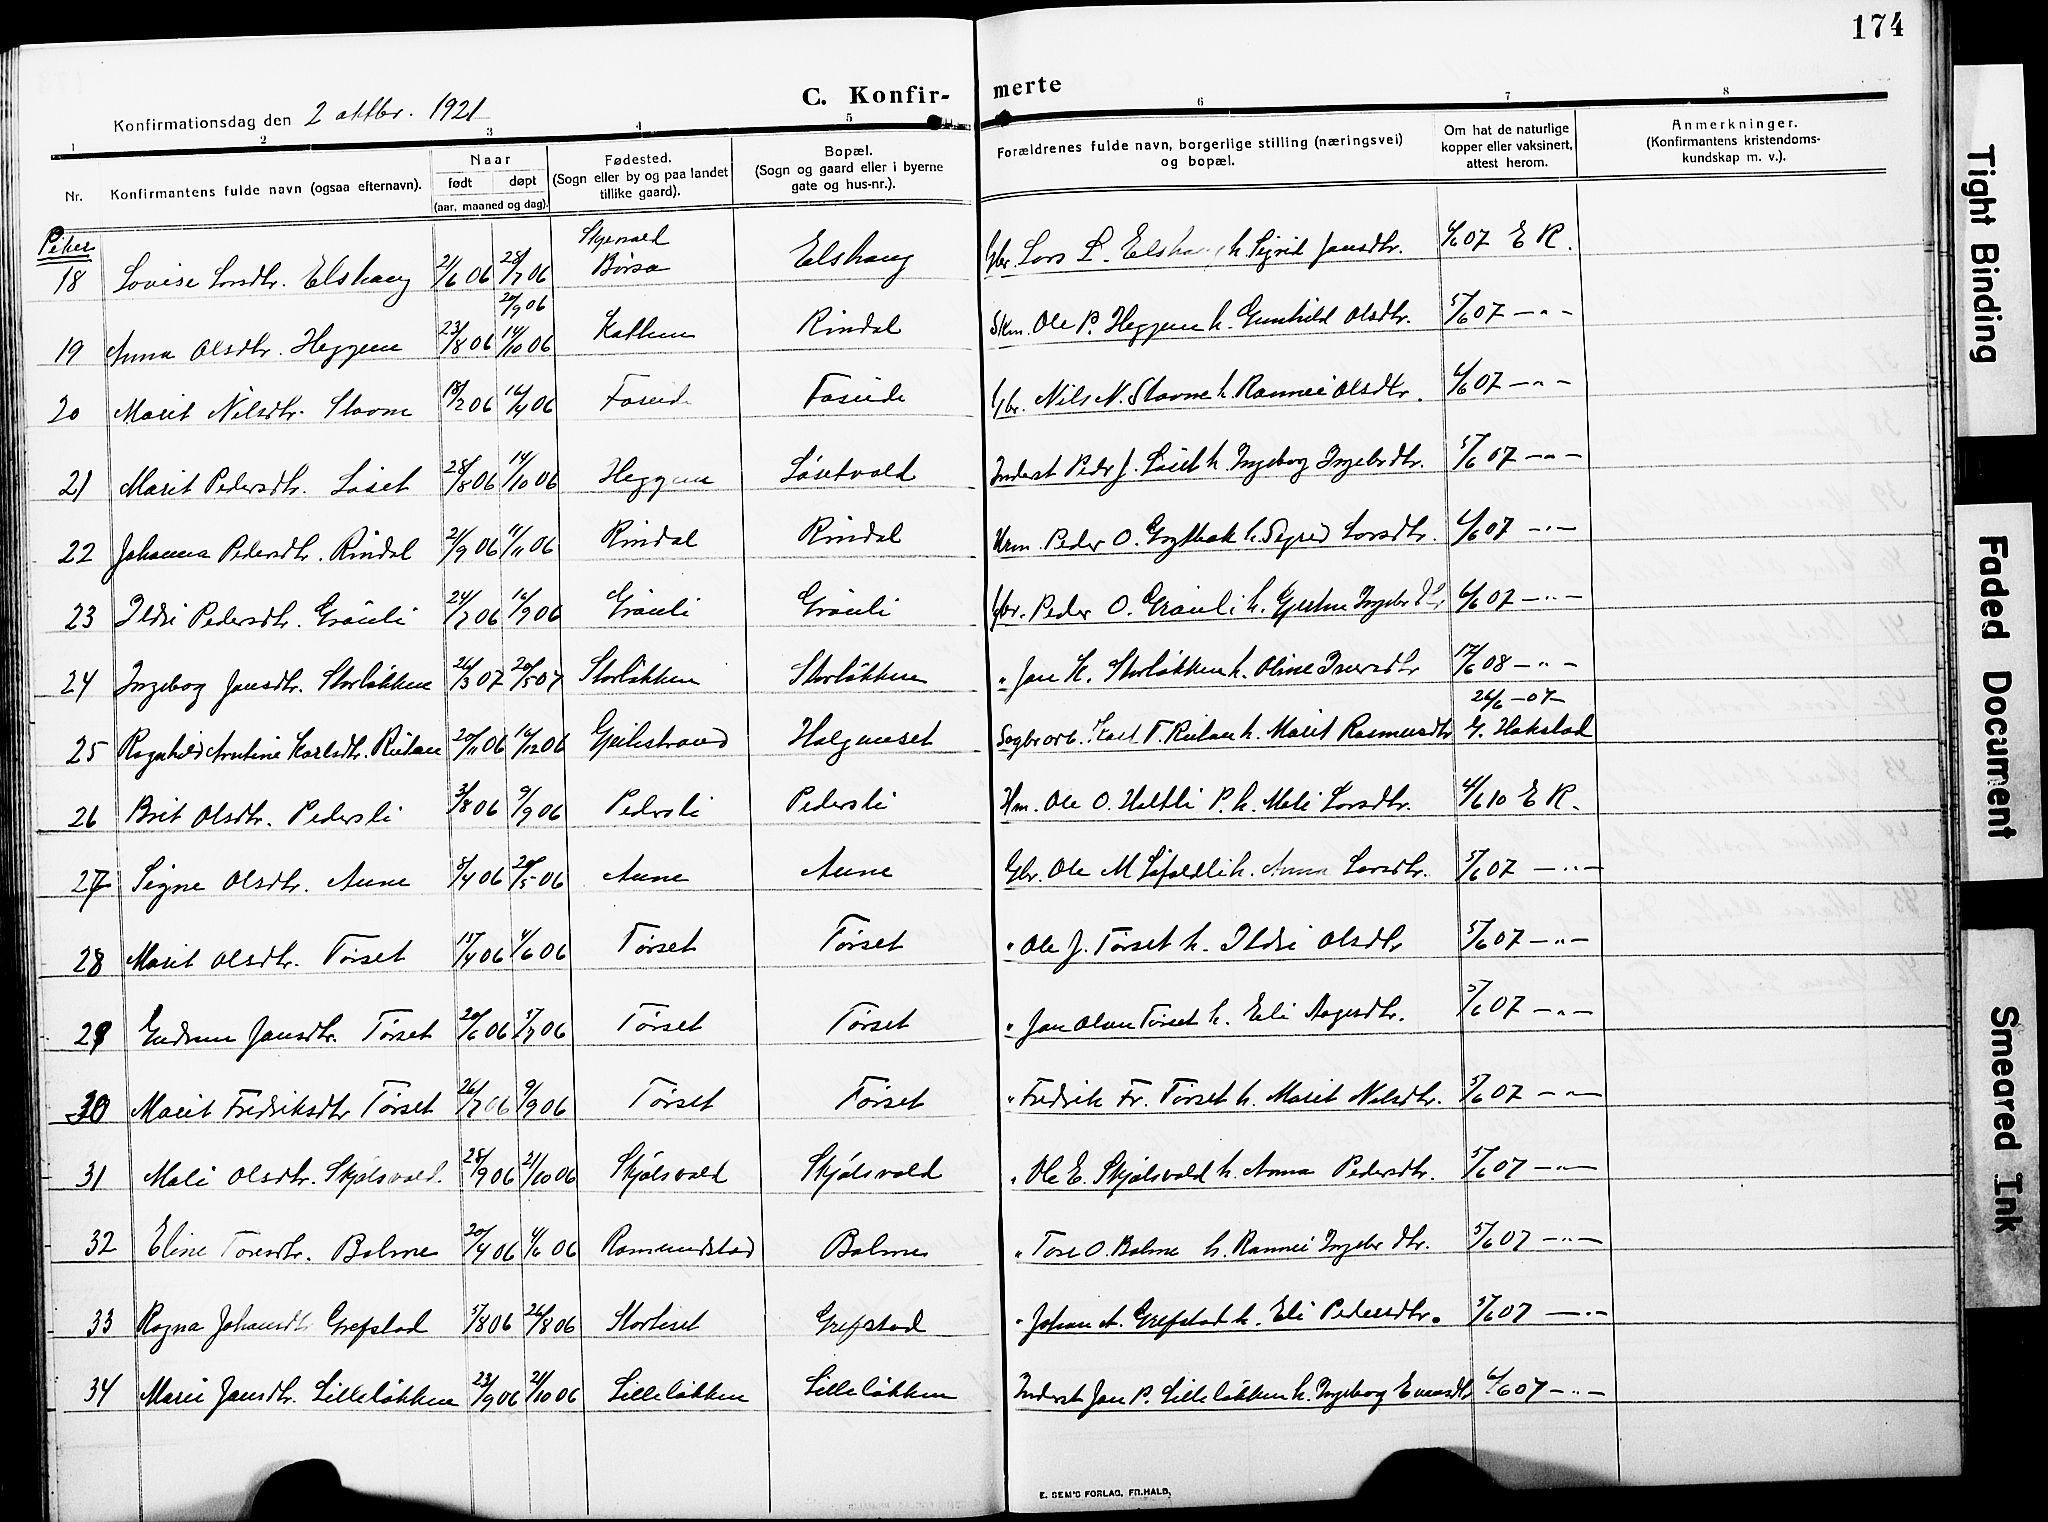 174
C. Konfir-merte
Konfirmationsdag den 2 oktbr. 1921
1 2 3 4 5 6 7 8
Nr.
Konfirmantens fulde navn (ogsaa efternavn).
Naar
født døpt
(aar, maaned og dag).
Fødested.
(Sogn eller by og paa landet
tillike gaard).
Bopæl.
(Sogn og gaard eller i byerne
gate og hus-nr.).
Forældrenes fulde navn, borgerlige stilling (næringsvei)
og bopæl.
Om hat de naturlige
kopper eller vaksinert,
attest herom.
Anmerkninger.
(Konfirmantens kristendoms-
kundskap m. v.).
Piker
18 Lovise Larsdtr. Elshaug 21/6 06 28/7 06 Børsa Elshaug Gbr. Lars L. Elshaug h. Sigrid Jonsdtr. 6/6 07 E R.
20/9 06
19 Anna Olsdtr. Heggem 23/8 06 14/10 06 Rindal Ole P. Heggem h. Gunhild Olsdtr. 5/6 07 — " —
20 Marit Nilsdtr. Stavne 18/2 06 16/4 06 Faseide Faseide Gbr. Nils N. Stavne h. Rannei Olsdtr. 6/6 07 — " —
21 Marit Pedersdtr. Løset 28/8 06 14/10 06 Heggem Løsetvald Inderst Peder J. Løset h. Ingebog Ingebr.dtr. 5/6 07 — " —
22 Johanna Pedersdtr. Rindal 21/9 06 11/11 06 Rindal Rindal Peder O. h. Sigrid Larsdtr. 6/6 07 — " —
23 Ildri Pedersdtr. Grønli 24/7 06 16/9 06 Grønli Grønli Gbr. Peder O. Grønli h. 6/6 07 — " —
24 Ingebog Jonsdtr. Storløkken 26/3 07 20/5 07 Storløkken Storløkken " Jon K. Storløkken h. Oline Iversdtr 12/6 08 — " —
26/6 — 07
25 Ragnhild Karlsdtr. 20/11 06 16/12 06 Halgunset h. Marit Rasmusdtr G. Hakstad
26 Brit Olsdtr. Pedersli 3/8 06 9/9 06 Pedersli Pedersli Hm. Ole O. Holtli P. h. Mali Larsdtr. 4/6 10 E R.
27 Signe Olsdtr. Aune 8/4 06 20/5 06 Aune Aune Gbr. Ole M. h. Anna Larsdtr. 5/6 07 — " —
28 Marit Olsdtr. Tørset 15/4 06 4/6 06 Tørset Tørset " Ole J. Tørset h. Ildri Olsdtr 5/6 07 — " —
29 Gudrun Jonsdtr. Tørset 20/6 06 5/7 06 Tørset Tørset " Jon Olsen Tørset h. Eli Aagesdtr. 5/6 07 — " —
30 Marit Fredriksdtr Tørset 26/7 06 9/9 06 Tørset Tørset " Fredrik Fr. Tørset h. Marit Nilsdtr. 5/6 07 — " —
31 Mali Olsdtr. Skjølsvold. 28/9 06 21/10 06 Skjølsvold Skjølsvold " Ole E. Skjølsvold h. Anna Pedersdtr. 5/6 07 — " —
32 Eline Toresdtr. Bolme 20/4 06 4/6 06 Romundstad Bolme " Tore O. Bolme h. Rannei Ingebr.dtr. 5/6 07 — " —
33 Ragna Johansdtr Grefstad 5/8 06 26/8 06 Storliset Grefstad " Johan A. Grefstad h. Eli Pedersdtr. 5/6 07 — " —
34 Marit Jonsdtr. Lilleløkken 23/9 06 21/10 06 Lilleløkken Lilleløkken Inderst Jon P. Lilleløkken h. Ingebog Evensdtr 6/6 07 — " —
E. SEM'S FORLAG, FR.HALD.
Tight Binding
Faded Document
Smeared Ink